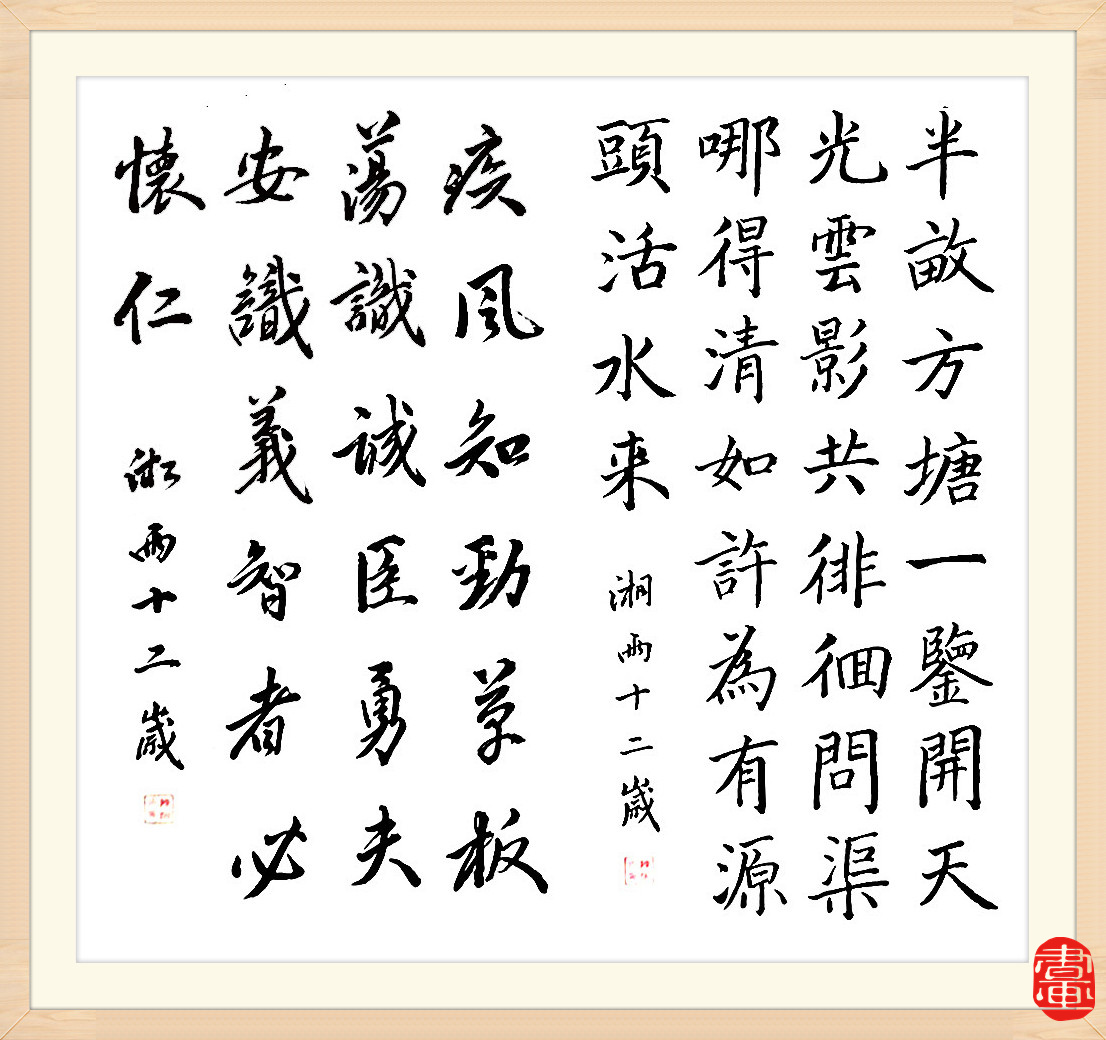 半畝方塘一鑒開天
光雲影共徘徊問渠
哪得清如許為有源
頭活水来
湘雨十二歲
疾風知勁草板
蕩識誠臣勇夫
安識義智者必
懷仁
湘雨十二歲
書画